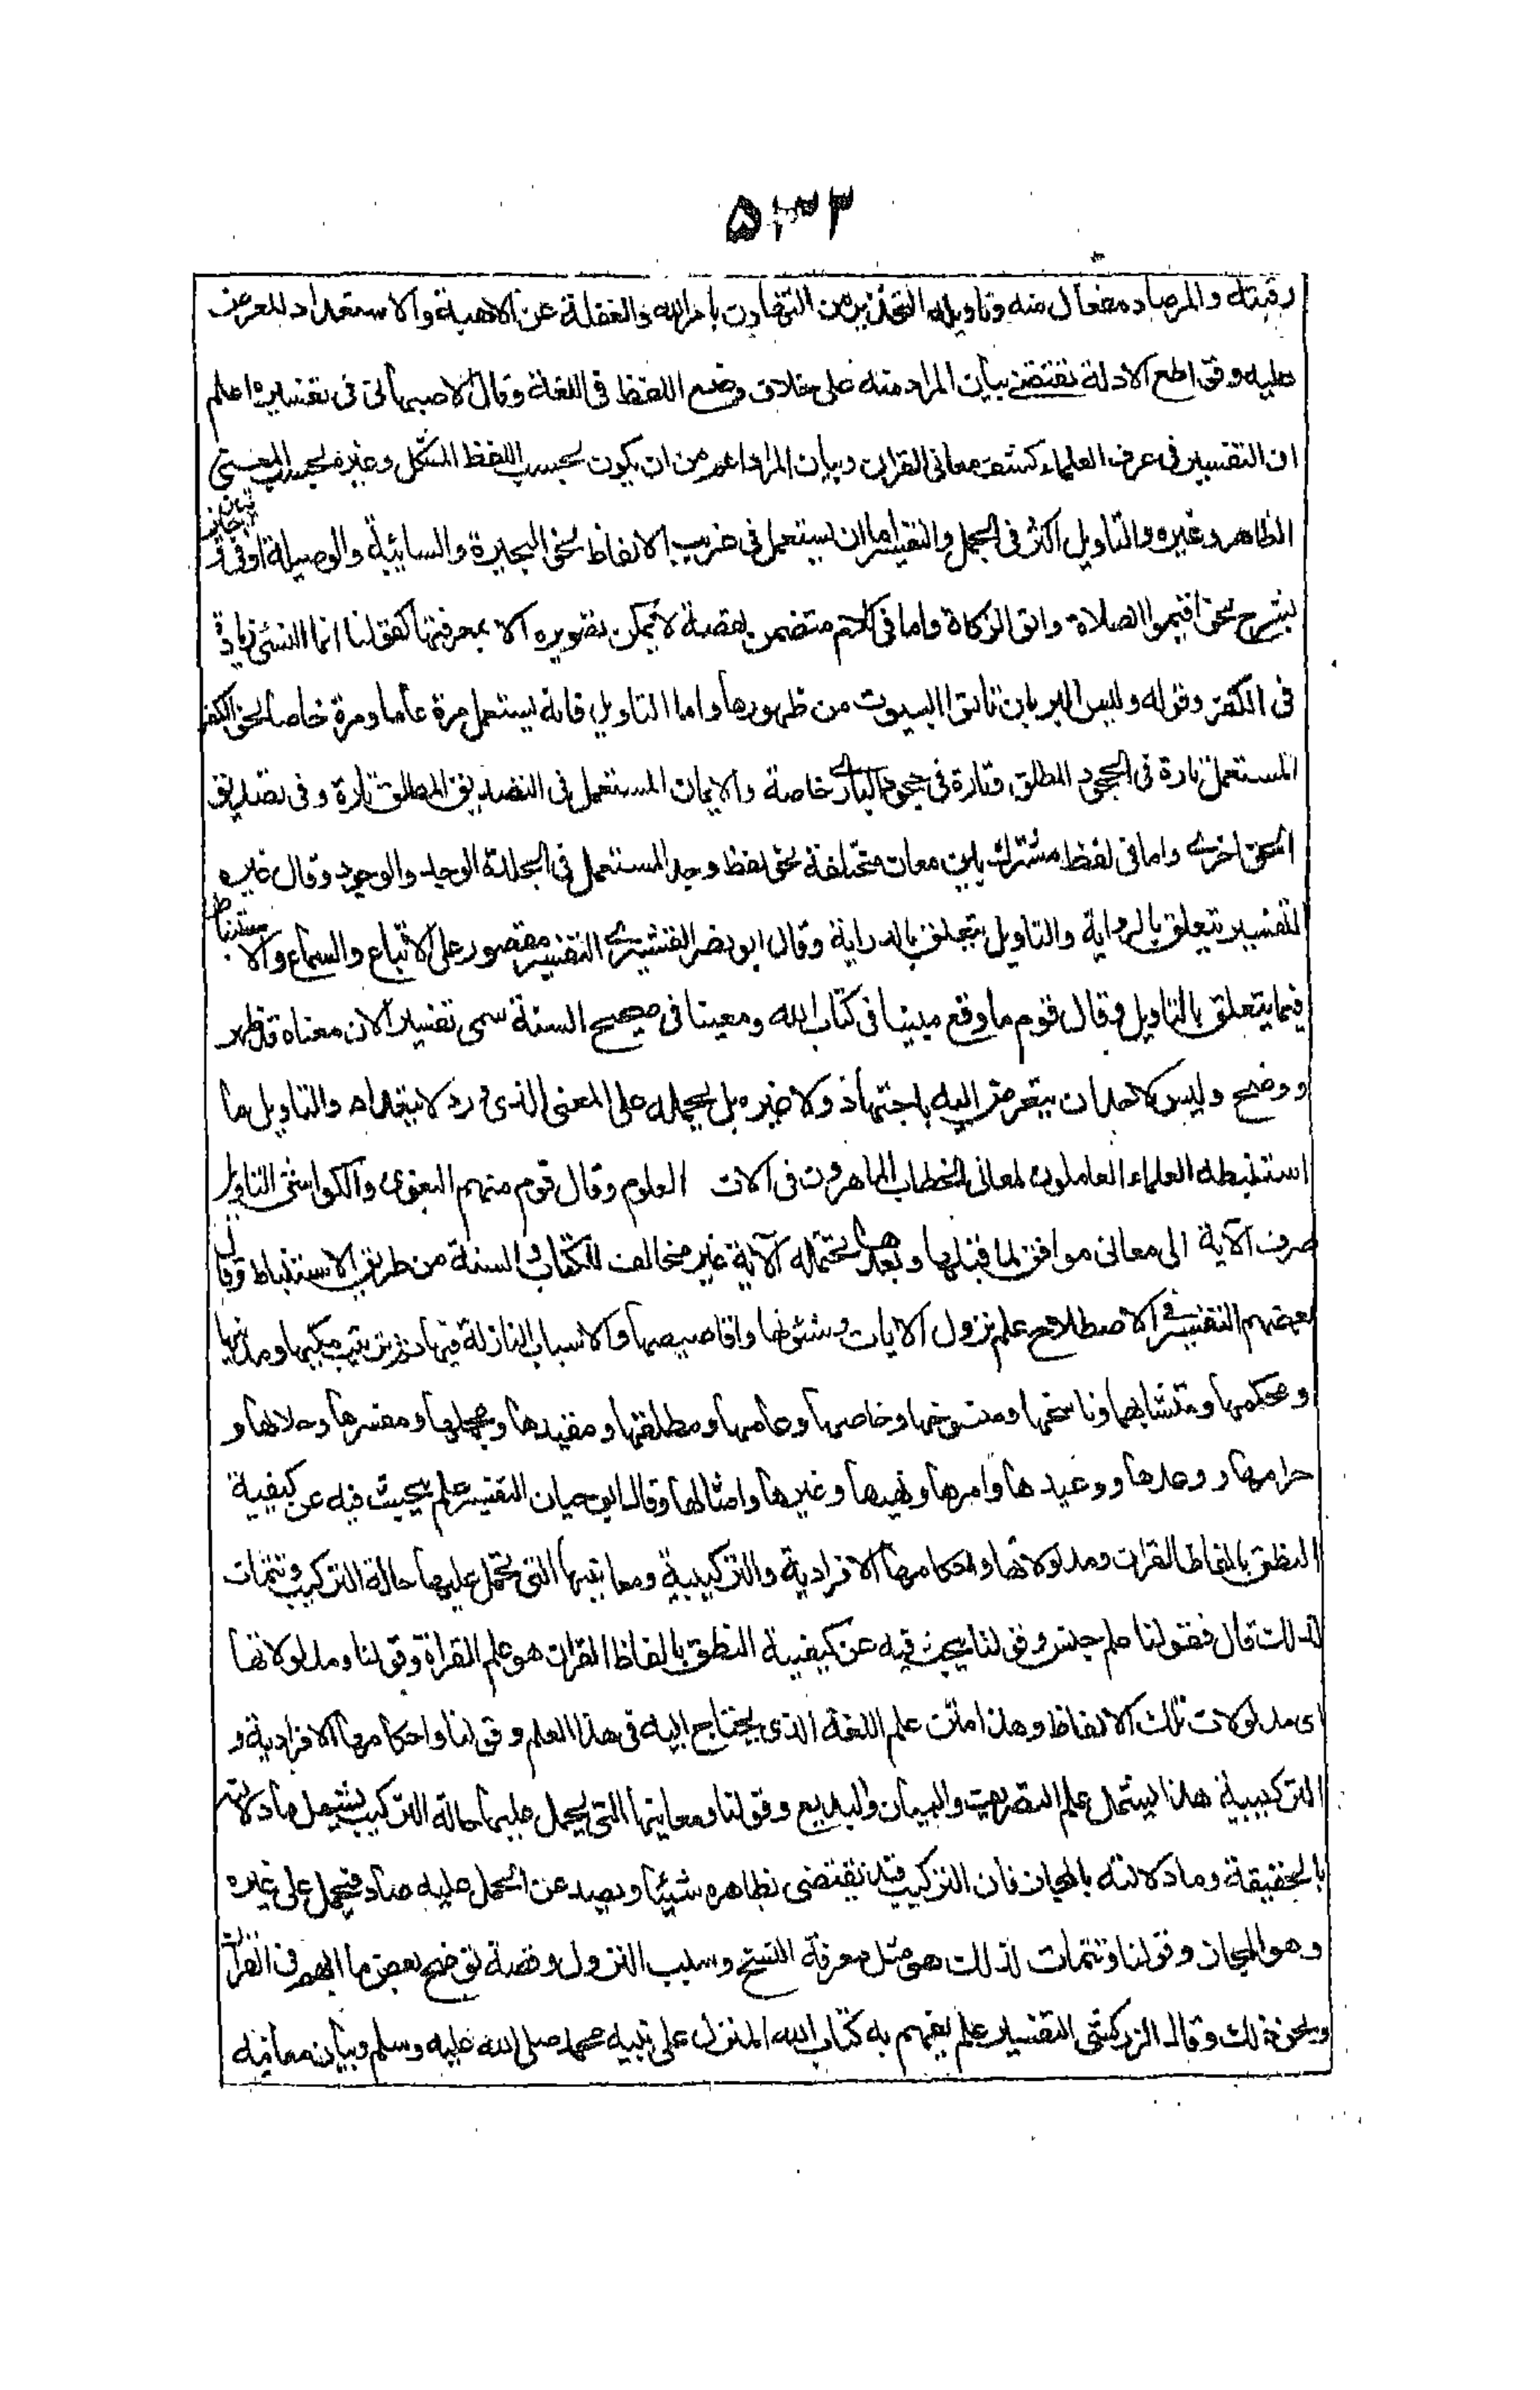 ۵۳۳
رقبته والمرصاد مفعال منه وتاويله التحذير من التهاون بامر الله والغفلة عن الاهبة والاستعداد للعرض
عليه وقواطع الادلة تقتضى بيان المراد منه على خلاف وضع اللفظ فى اللغة وقال الاصبهانى فى تفسيره اعلم
ان التفسير فى عرف العلماء كشف معانى القران وبيان المراد اعم من ان يكون بحسب اللفظ المشكل وغيره لحسب المعنى
الظاهر وغيره والتاويل اكثر فى الجمل والتفسير اما ان يستعمل فى غريب الالفاظ نحو البحيرة والسائبة والوصيلة او فى
بشرح نحو اقيموا الصلاة واتوا الزكاة واما فى كلام متضمن لقصة لا يمكن تصويره الا بمعرفتها كقولنا انما النسئى زيادة
فى الكفر وقوله وليس البر بان تاتوا البيوت من ظهورها واما التاويل فانه يستعمل مرة عاما ومرة خاصا نحو الكفر
المستعمل تارة فى الجحود المطلق وتارة فى جحود البارى خاصة والايمان المستعمل فى التصديق المطلق تارة وفى تصديق
الحق اخرى واما فى لفظ مشترك بين معان مختلفة نحو لفظ وجد المستعمل فى الجدة الوجد والوجود وقال غيره
التفسير يتعلق بالرواية والتاويل يتعلق بالدراية وقال ابو نصر القشيرى التفسير مقصور على الاتباع والسماع والاستنباط
فيما يتعلق بالتاويل وقال قوم ما وقع مبينا فى كتاب الله ومعينا فى صحيح السنة سمى تفسيرا لان معناه قد ظهر
ووضح وليس لاحد ان يتعرض اليه باجتهاد ولا غيره بل يحمله على المعنى الذى ورد لا يتعداه والتاويل ما
استنبطه العلماء العاملون لمعانى الخطاب الماهرون فى الات العلوم وقال قوم منهم البغوى والكواشى التاويل
صرف الآية الى معانى موافق لما قبلها وبعدها تحتمله الآية غير مخالف للكتاب والسنة من طريق الاستنباط وقال
بعضهم التفسير فى الاصطلاح علم نزول الايات وشئونها واقاصيصها والاسباب النازلة فيها ثم ترتيب مكيها ومدنيها
ومحكمها ومتشابهها وناسخها ومنسوخها وخاصها وعامها ومطلقها ومقيدها ومجملها ومفسرها وحلالها و
حرامها ووعدها ووعيدها وامرها ونهيها وغيرها وامثالها وقال ابو حيان التفسير علم يبحث فيه عن كيفية
النطق بالفاظ القران ومدلولاتها واحكامها الافرادية والتركيبية ومعانيها التى تحمل عليها حالة التركيب وتتمات
لذلك قال فقولنا علم جنس وقولنا يبحث فيه عن كيفية النطق بالفاظ القران هو علم القراة وقولنا ومدلولاتها
اى مدلولات تلك الالفاظ وهذا متن علم اللغة الذى يحتاج اليه فى هذا العلم وقولنا واحكامها الافرادية و
التركيبية هذا يشمل علم التصريف والبيان والبديع وقولنا ومعانيها التى يحمل عليها حالة التركيب يشمل ما دلالته
بالحقيقة وما دلالته بالمجاز فان التركيب قد يقتضى بظاهره شيئا ويصد عن الحمل عليه صاد فيحمل على غيره
وهو المجاز وقولنا وتتمات لذلك هو مثل معرفة النسخ وسبب النزول وقصة توضح بعض ما ابهم فى القران
ونحو ذلك وقال الزركشى التفسير علم يفهم به كتاب الله المنزل على نبيه محمد صلى الله عليه وسلم وبيان معانيه